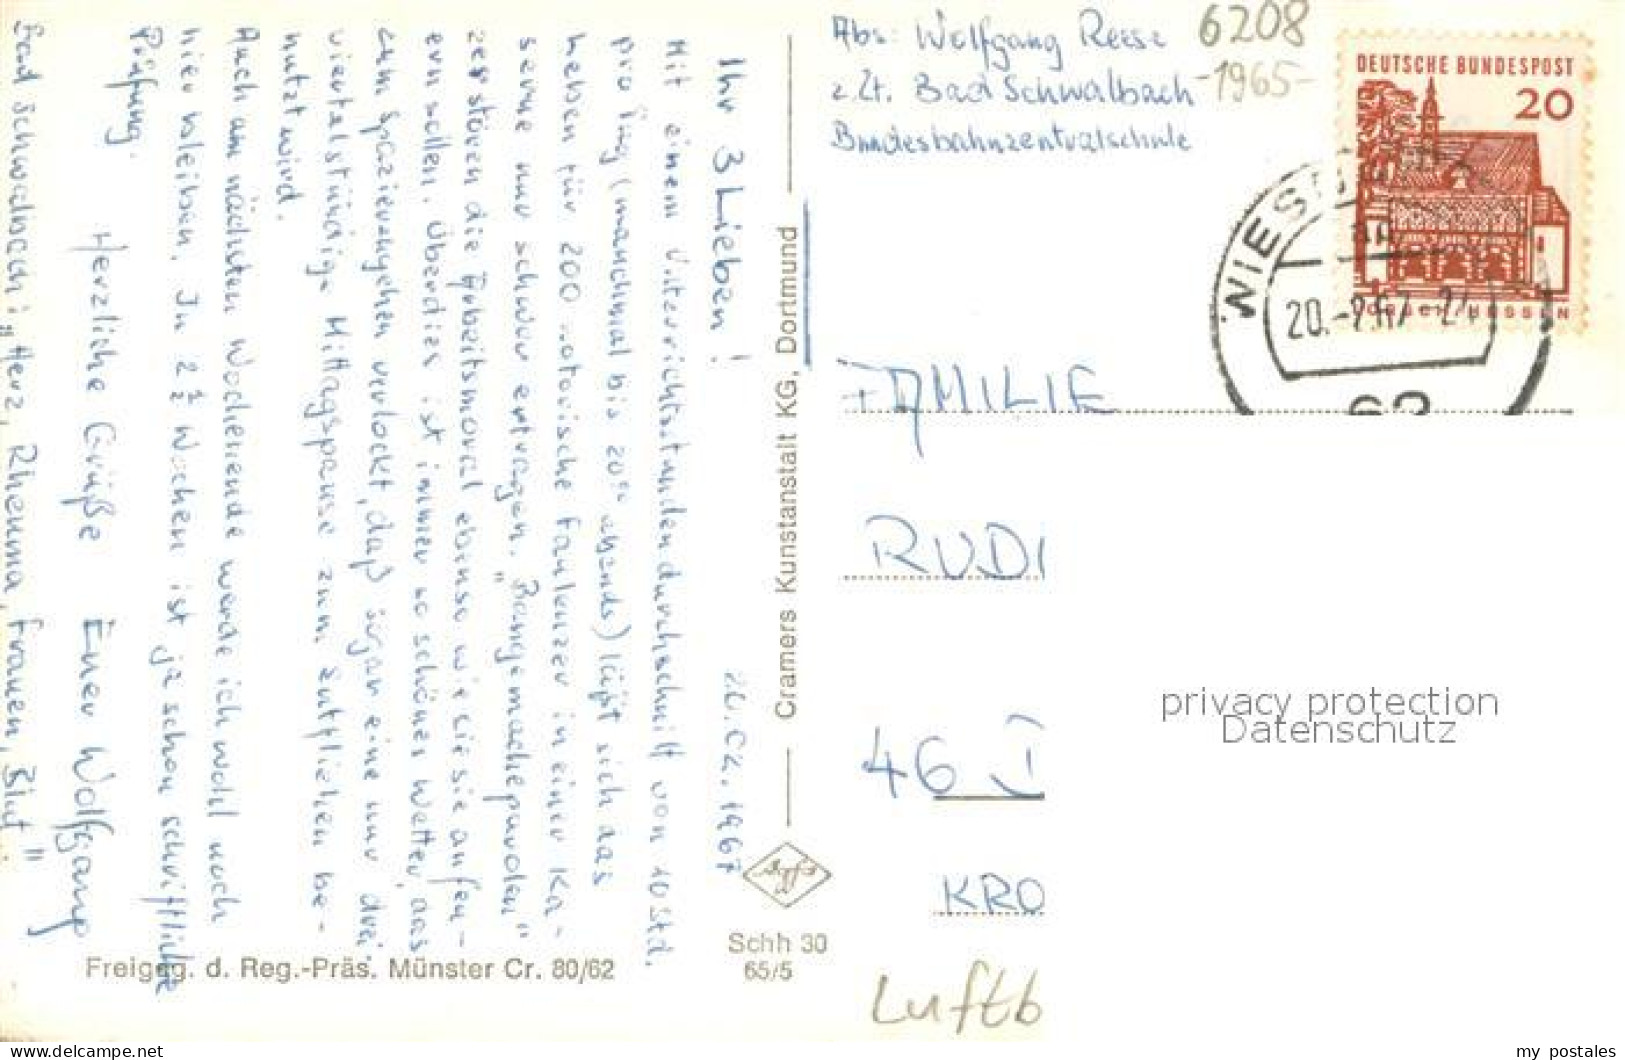 Abs: Wolfgang Reese
z.Zt. Bad Schwalbach
Bundesbahnzentralschule
6208
-1965-
DEUTSCHE BUNDESPOST
20
LORSCH/HESSEN
WIESBADEN
20.-2.67-24
62
Ihr 3 Lieben!
20.02.1967
Mit einem Unterrichtsstundendurchschnitt von 10 Std.
pro Tag (manchmal bis 20°° abends) läßt sich das
heben für 200 notorische Faulenzer in einer Ka-
serne nur schwer ertragen. "Bangemacheparolen"
zerstören die Arbeitsmoral ebenso wie sie sie aufen-
ern sollen. Überdies ist immer so schönes Wetter, das
zum Spazierengehen verlockt, daß sogar eine nur drei-
viertelstündige Mittagspause zum Entfliehen be-
nutzt wird.
Auch am nächsten Wochenende werde ich wohl noch
hier bleiben. In 2 1/2 Wochen ist ja schon schriftliche
Prüfung.
Herzliche Grüße Euer Wolfgang
Bad Schwalbach: "Herz, Rheuma, Frauen, Blut"
Cramers Kunstanstalt KG, Dortmund
Schh 30
65/5
Freigeg. d. Reg.-Präs. Münster Cr. 80/62
FAMILIE
RUDI
46 I
KRO
Luftb
privacy protection
Datenschutz
my postales
www.delcampe.net